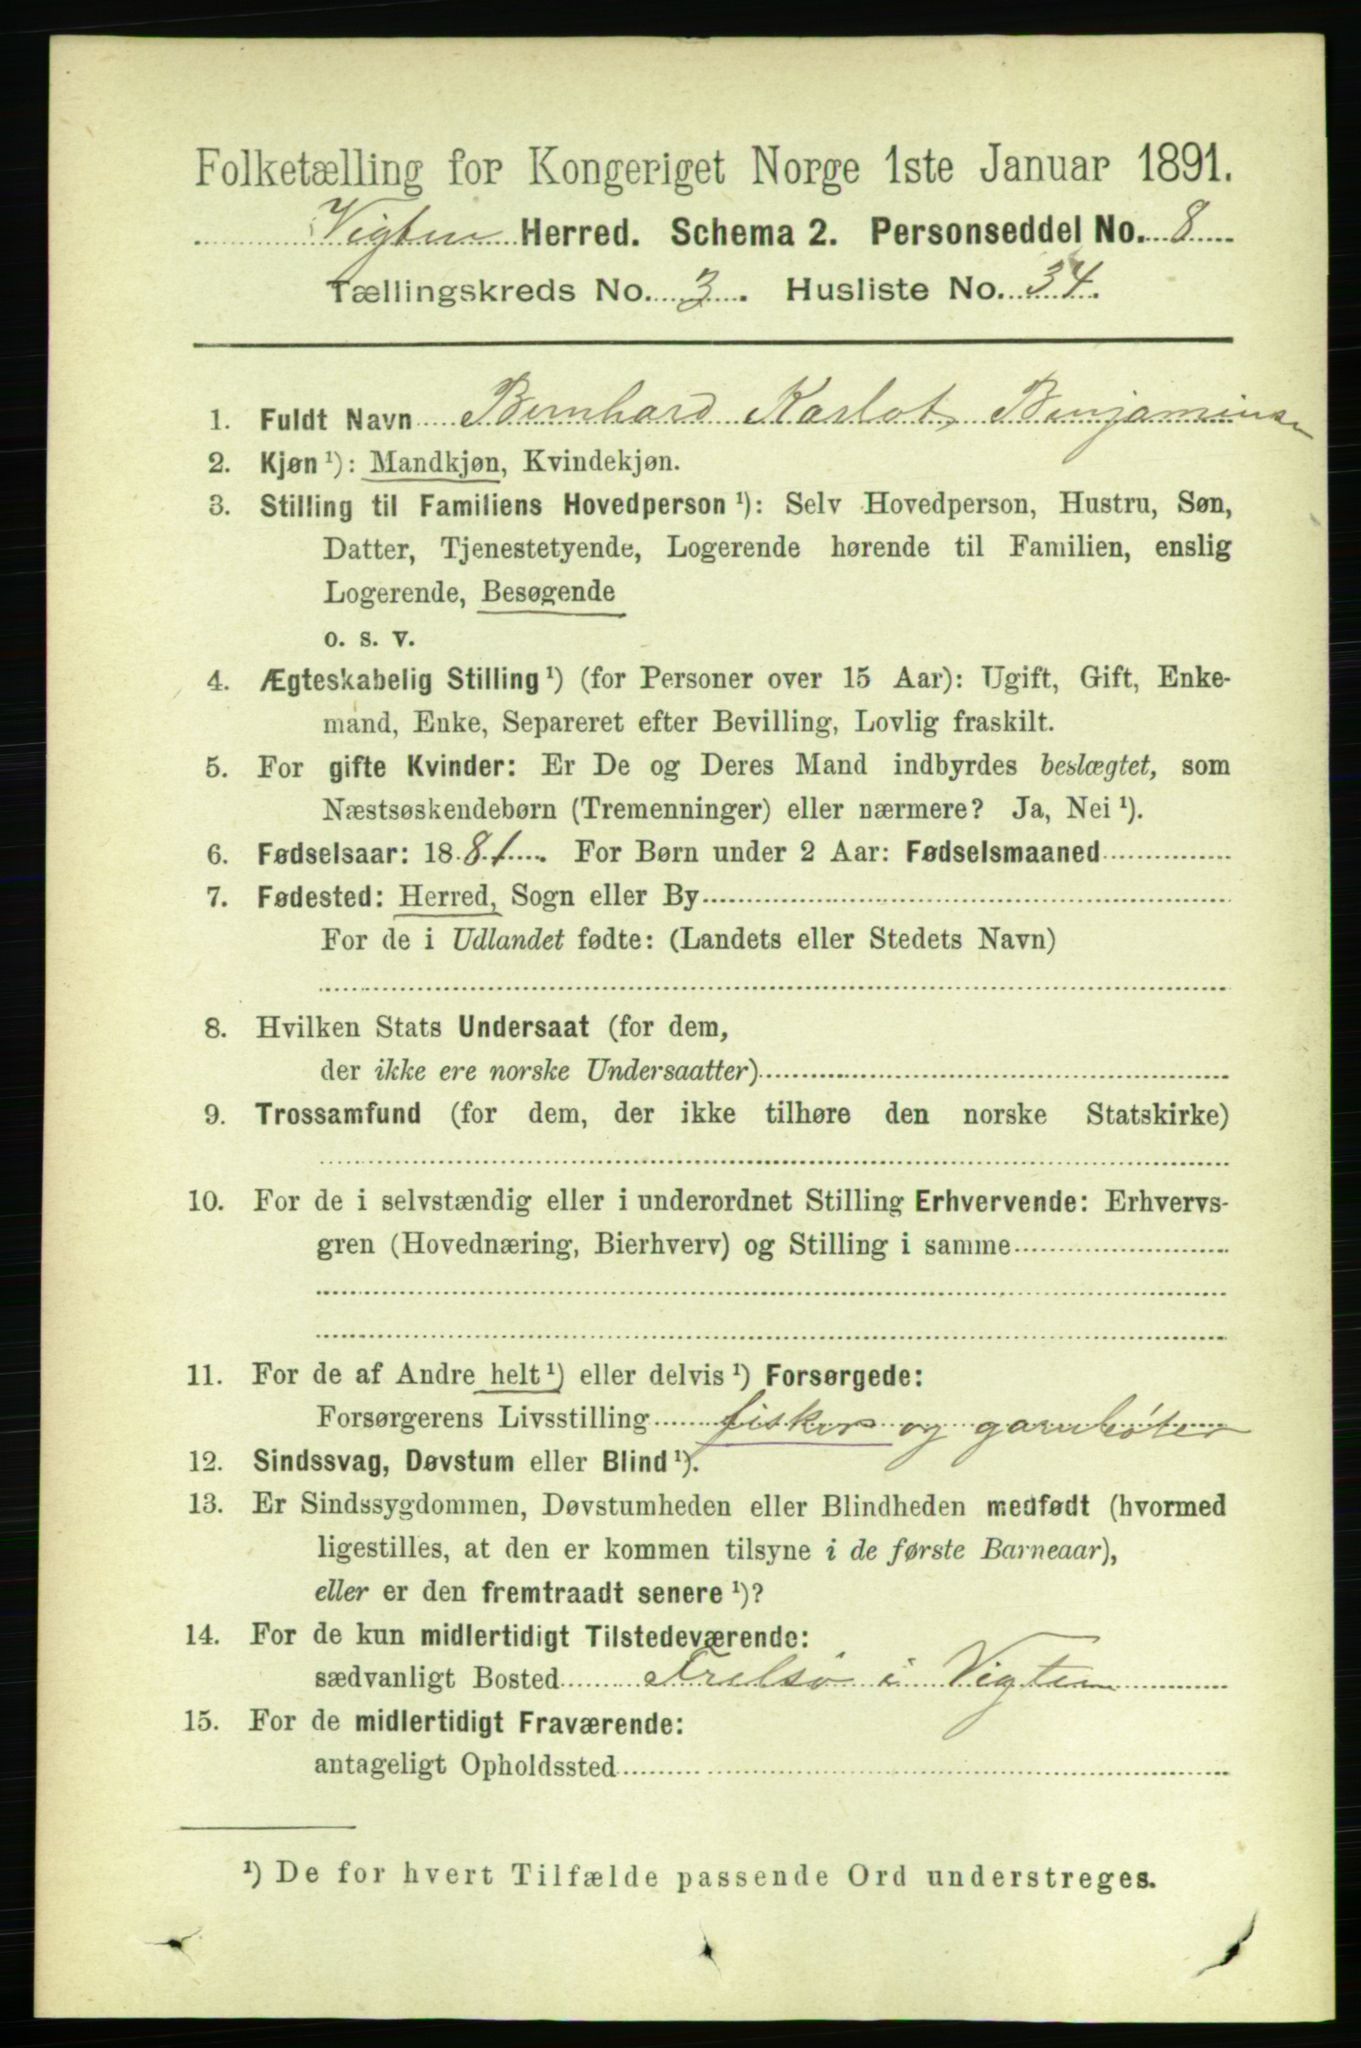 Folketælling for Kongeriget Norge 1ste Januar 1891.
Vigten Herred. Schema 2. Personseddel No. 8
Tællingskreds No. 3. Husliste No. 34.
1. Fuldt Navn Bernhard Karlot, Benjaminsen
2. Kjøn ¹): Mandkjøn, Kvindekjøn.
3. Stilling til Familiens Hovedperson ¹): Selv Hovedperson, Hustru, Søn,
Datter, Tjenestetyende, Logerende hørende til Familien, enslig
Logerende, Besøgende
o. s. v.
4. Ægteskabelig Stilling ¹) (for Personer over 15 Aar): Ugift, Gift, Enke-
mand, Enke, Separeret efter Bevilling, Lovlig fraskilt.
5. For gifte Kvinder: Er De og Deres Mand indbyrdes beslægtet, som
Næstsøskendebørn (Tremenninger) eller nærmere? Ja, Nei ¹).
6. Fødselsaar: 1881. For Børn under 2 Aar: Fødselsmaaned
7. Fødested: Herred, Sogn eller By
For de i Udlandet fødte: (Landets eller Stedets Navn)
8. Hvilken Stats Undersaat (for dem,
der ikke ere norske Undersaatter)
9. Trossamfund (for dem, der ikke tilhøre den norske Statskirke)
10. For de i selvstændig eller i underordnet Stilling Erhvervende: Erhvervs-
gren (Hovednæring, Bierhverv) og Stilling i samme
11. For de af Andre helt ¹) eller delvis ¹) Forsørgede:
Forsørgerens Livsstilling fisker og garnbøter
12. Sindssvag, Døvstum eller Blind ¹).
13. Er Sindssygdommen, Døvstumheden eller Blindheden medfødt (hvormed
ligestilles, at den er kommen tilsyne i de første Barneaar),
eller er den fremtraadt senere ¹)?
14. For de kun midlertidigt Tilstedeværende:
sædvanligt Bosted Frelsø i Vigten
15. For de midlertidigt Fraværende:
antageligt Opholdssted
¹) De for hvert Tilfælde passende Ord understreges.